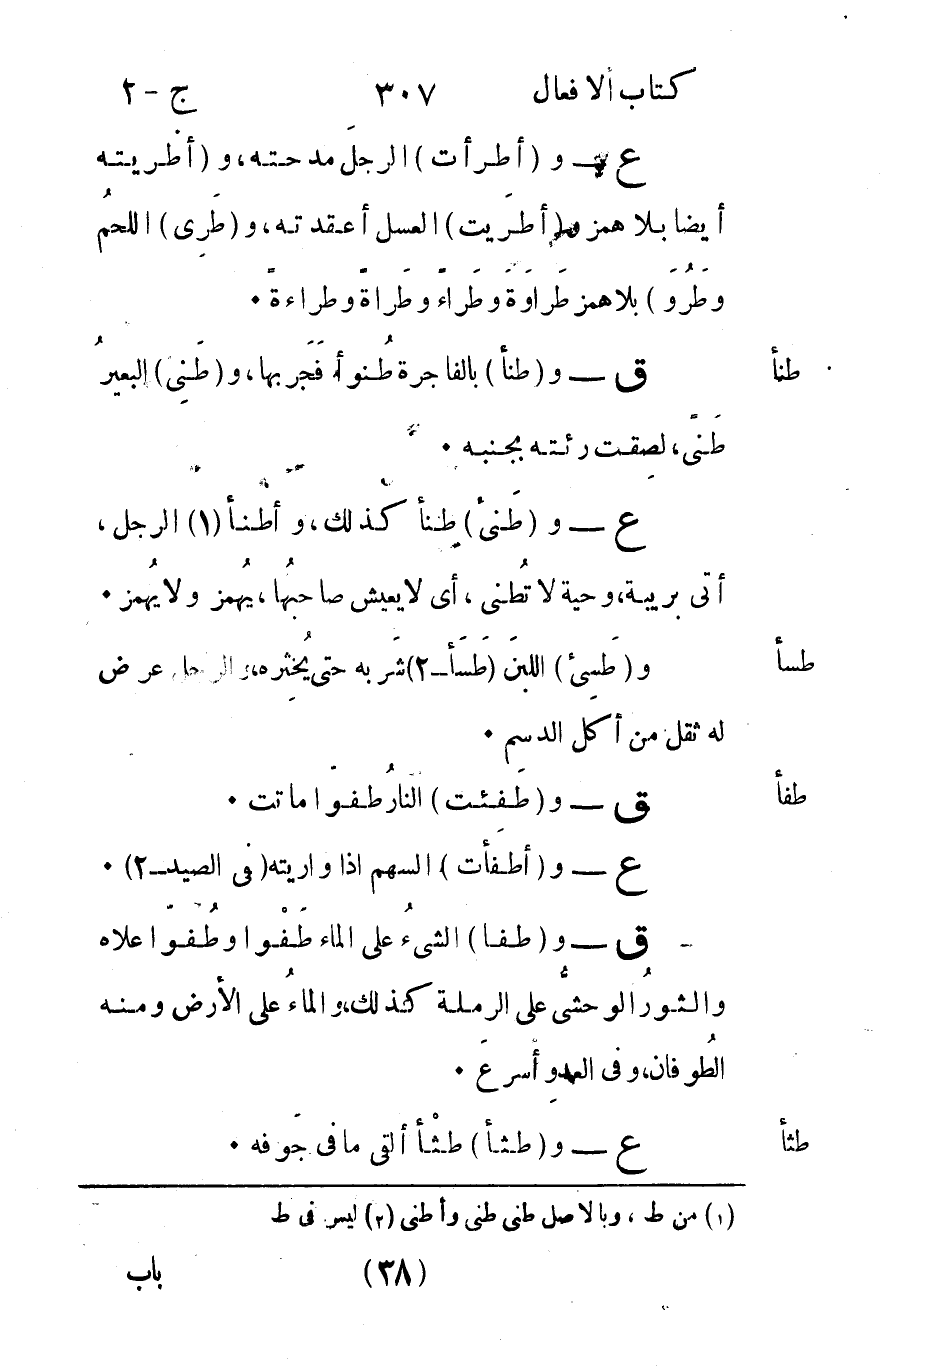 كتاب الافعال ٣٠٧ ج - ٢
ع ـــ و (أطرأت) الرجلَ مدحته، و (أطريته
أيضا بلا همز و(أطرَيت) العسل أعقدته، و(طَرِى) اللحمُ
وطَرُوَ) بلاهمز طَراوَةً وطَراءً وطَراةً وطراءةً •
طنأ ق ـــ و (طنأ) بالفاجرة طُنوأ فَجَر بها، و(طَنِىَ) البعيرُ
طَنًى، لصقت رئته بجنبه •
ع ـــ و (طَنِئَ) طِنأ كذلك، و أطنأ (١) الرجل،
أتى بريبة، وحية لا تُطنى، أى لايعيش صاحبُها، يُهمز ولايُهمز •
طسأ و (طَسِئ) اللبنَ (طَسَأَ_٢) شَربه حتى يُخثره، والرجل عرض
له ثقل من أكل الدسم •
طفأ ق ـــ و (طَفِئت) النارُ طفوا ماتت •
ع ـــ و (أطفأت) السهم اذا واريته (فى الصيد_٢) •
ق ـــ و (طفا) الشىءُ على الماء طَفْوا وطُفُوّا علاه
والثورُ الوحشىُّ على الرملة كذلك، والماءُ على الأرض ومنه
الطُوفان، وفى العدو أسرعَ •
طثأ ع ـــ و (طثأ) طثْأ ألقى ما فى جَوفه •
(١) من ط ، وبالاصل طنى طنى وأطنى (٢) ليس فى ط
(٣٨) باب